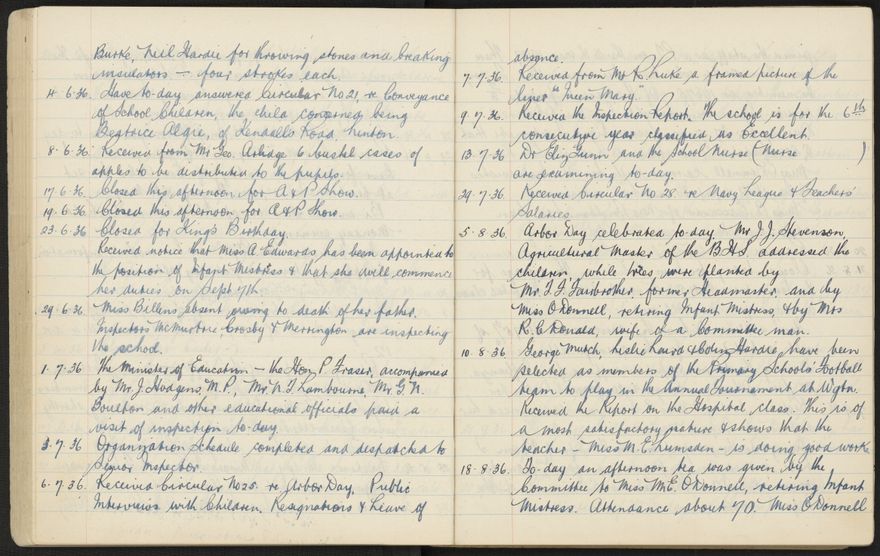 Burke, Neil Hardie for throwing stones and breaking
insulators – four strokes each.
4.6.36. Have to-day answered Circular No 21, re Conveyance
of School Children, the child concerned being
Beatrice Algie, of Lendells Road, Linton.
8.6.36. Received from Mr Geo. Arlidge 6 bushel cases of
apples to be distributed to the pupils.
17.6.36. Closed this afternoon for A & P Show.
19.6.36. Closed this afternoon for A & P Show.
23.6.36 Closed for King's Birthday.
Received notice that Miss A. Edwards has been appointed to
the position of Infant Mistress & that she will commence
her duties on Sept 7th.
29.6.36. Miss Billens absent owing to death of her father.
Inspectors McMurtrie, Crosby & Merrington are inspecting
the school.
1.7.36 The Minister of Education – the Hon P. Fraser, accompanied
by Mr. J. Hodgens, M.P., Mr. N. T. Lambourne, Mr. G. N.
Boulton and other educational officials paid a
visit of inspection to-day.
3.7.36 Organization Schedule completed and despatched to
Senior Inspector.
6.7.36. Received Circular No 25. re Arbor Day, Public
Interviews with Children, Resignations & Leave of
absence.
7.7.36. Received from Mr R. Luke a framed picture of the
liner "Queen Mary".
9.7.36. Received the Inspection Report. The school is for the 6th
consecutive year classified as excellent.
13.7.36 Dr Elizth Gunn and the School Nurse (Nurse )
are examining to-day.
29.7.36. Received Circular No 28 re Navy League & Teachers'
Salaries
5.8.36. Arbor Day celebrated to-day. Mr J. J. Stevenson,
Agricultural Master of the B.H.S. addressed the
children, while trees were planted by
Mr. F. F. Fairbrother, former Headmaster, and by
Miss O'Donnell, retiring Infant Mistress, & by Mrs
R. C. Donald, wife of a Committee man.
10.8.36. George Mutch, Leslie Laird & Colin Hardie have been
selected as members of the Primary Schools' Football
team to play in the Annual Tournament at Wgtn.
Received the Report on the Hospital class. This is of
a most satisfactory nature & shows that the
teacher – Miss M. E. Lumsden – is doing good work.
18.8.36. To-day an afternoon tea was given by the
Committee to Miss M.E. O'Donnell, retiring Infant
Mistress. Attendance about 70. Miss O'Donnell